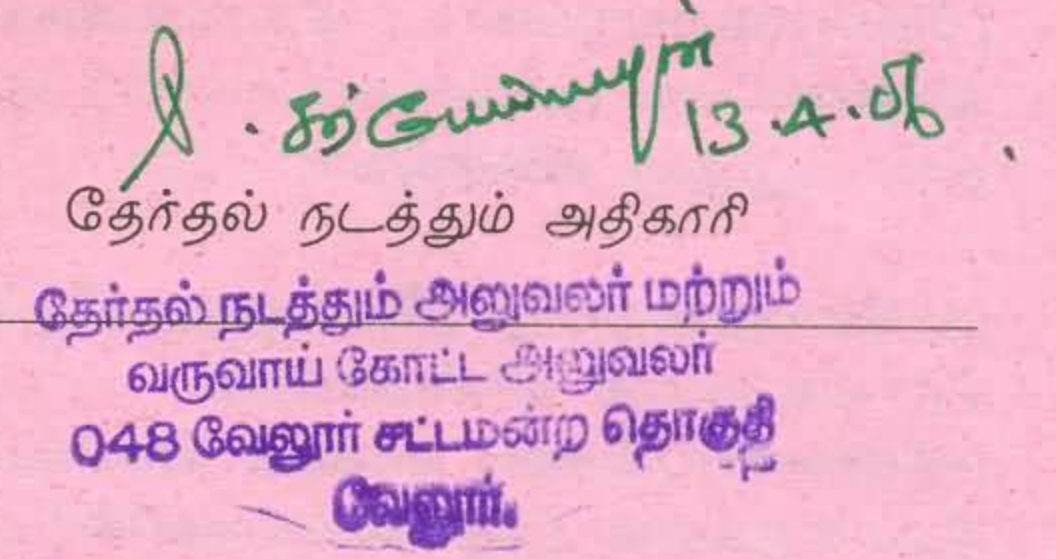 13.4.06
தேர்தல் நடத்தும் அதிகாரி
தேர்தல் நடத்தும் அலுவலர் மற்றும்
வருவாய் கோட்ட அலுவலர்
048 வேலூர் சட்டமன்ற தொகுதி
வேலூர்.